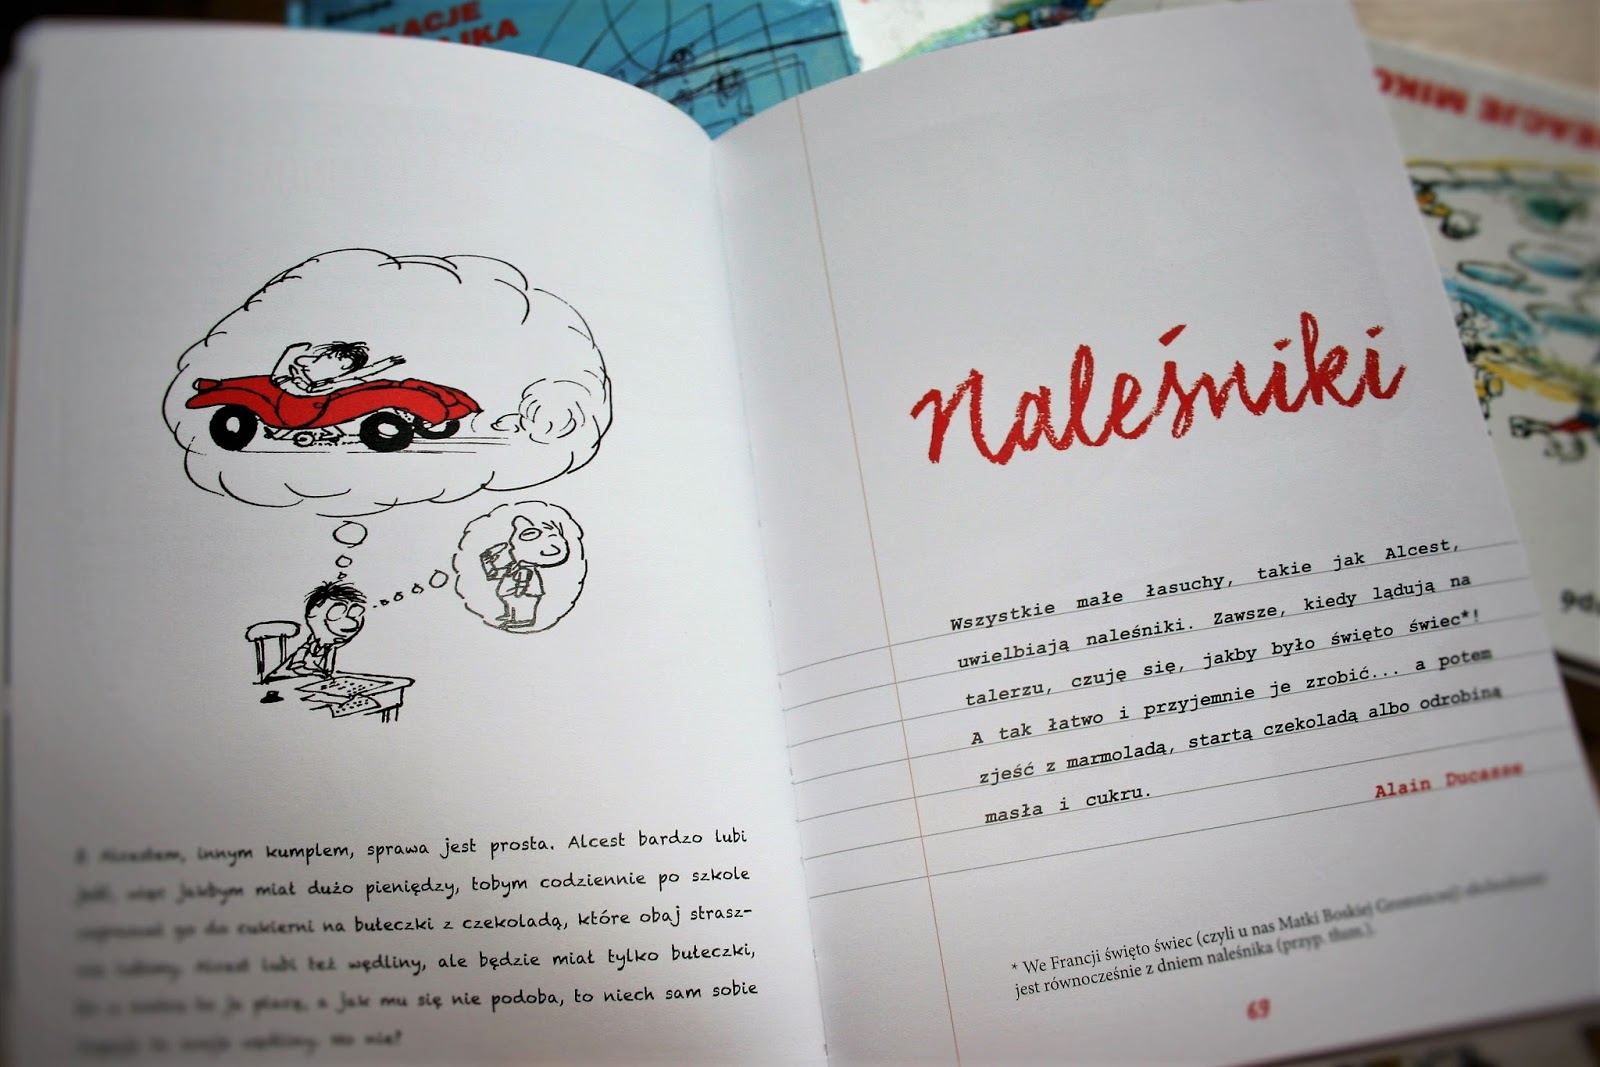 KACJE
JKA
EACJE MIKO
Z Alcestem, innym kumplem, sprawa jest prosta. Alcest bardzo lubi
jeść, więc jakbym miał dużo pieniędzy, tobym codziennie po szkole
zapraszał go do cukierni na bułeczki z czekoladą, które obaj strasz-
nie lubimy. Alcest lubi też wędliny, ale będzie miał tylko bułeczki,
bo w końcu to ja płacę, a jak mu się nie podoba, to niech sam sobie
kupuje te swoje wędliny. No nie?
Naleśniki
Wszystkie małe łasuchy, takie jak Alcest,
uwielbiają naleśniki. Zawsze, kiedy lądują na
talerzu, czuję się, jakby było święto świec*!
A tak łatwo i przyjemnie je zrobić... a potem
zjeść z marmoladą, startą czekoladą albo odrobiną
masła i cukru.
Alain Ducasse
* We Francji święto świec (czyli u nas Matki Boskiej Gromnicznej) obchodzone
jest równocześnie z dniem naleśnika (przyp. tłum.).
69